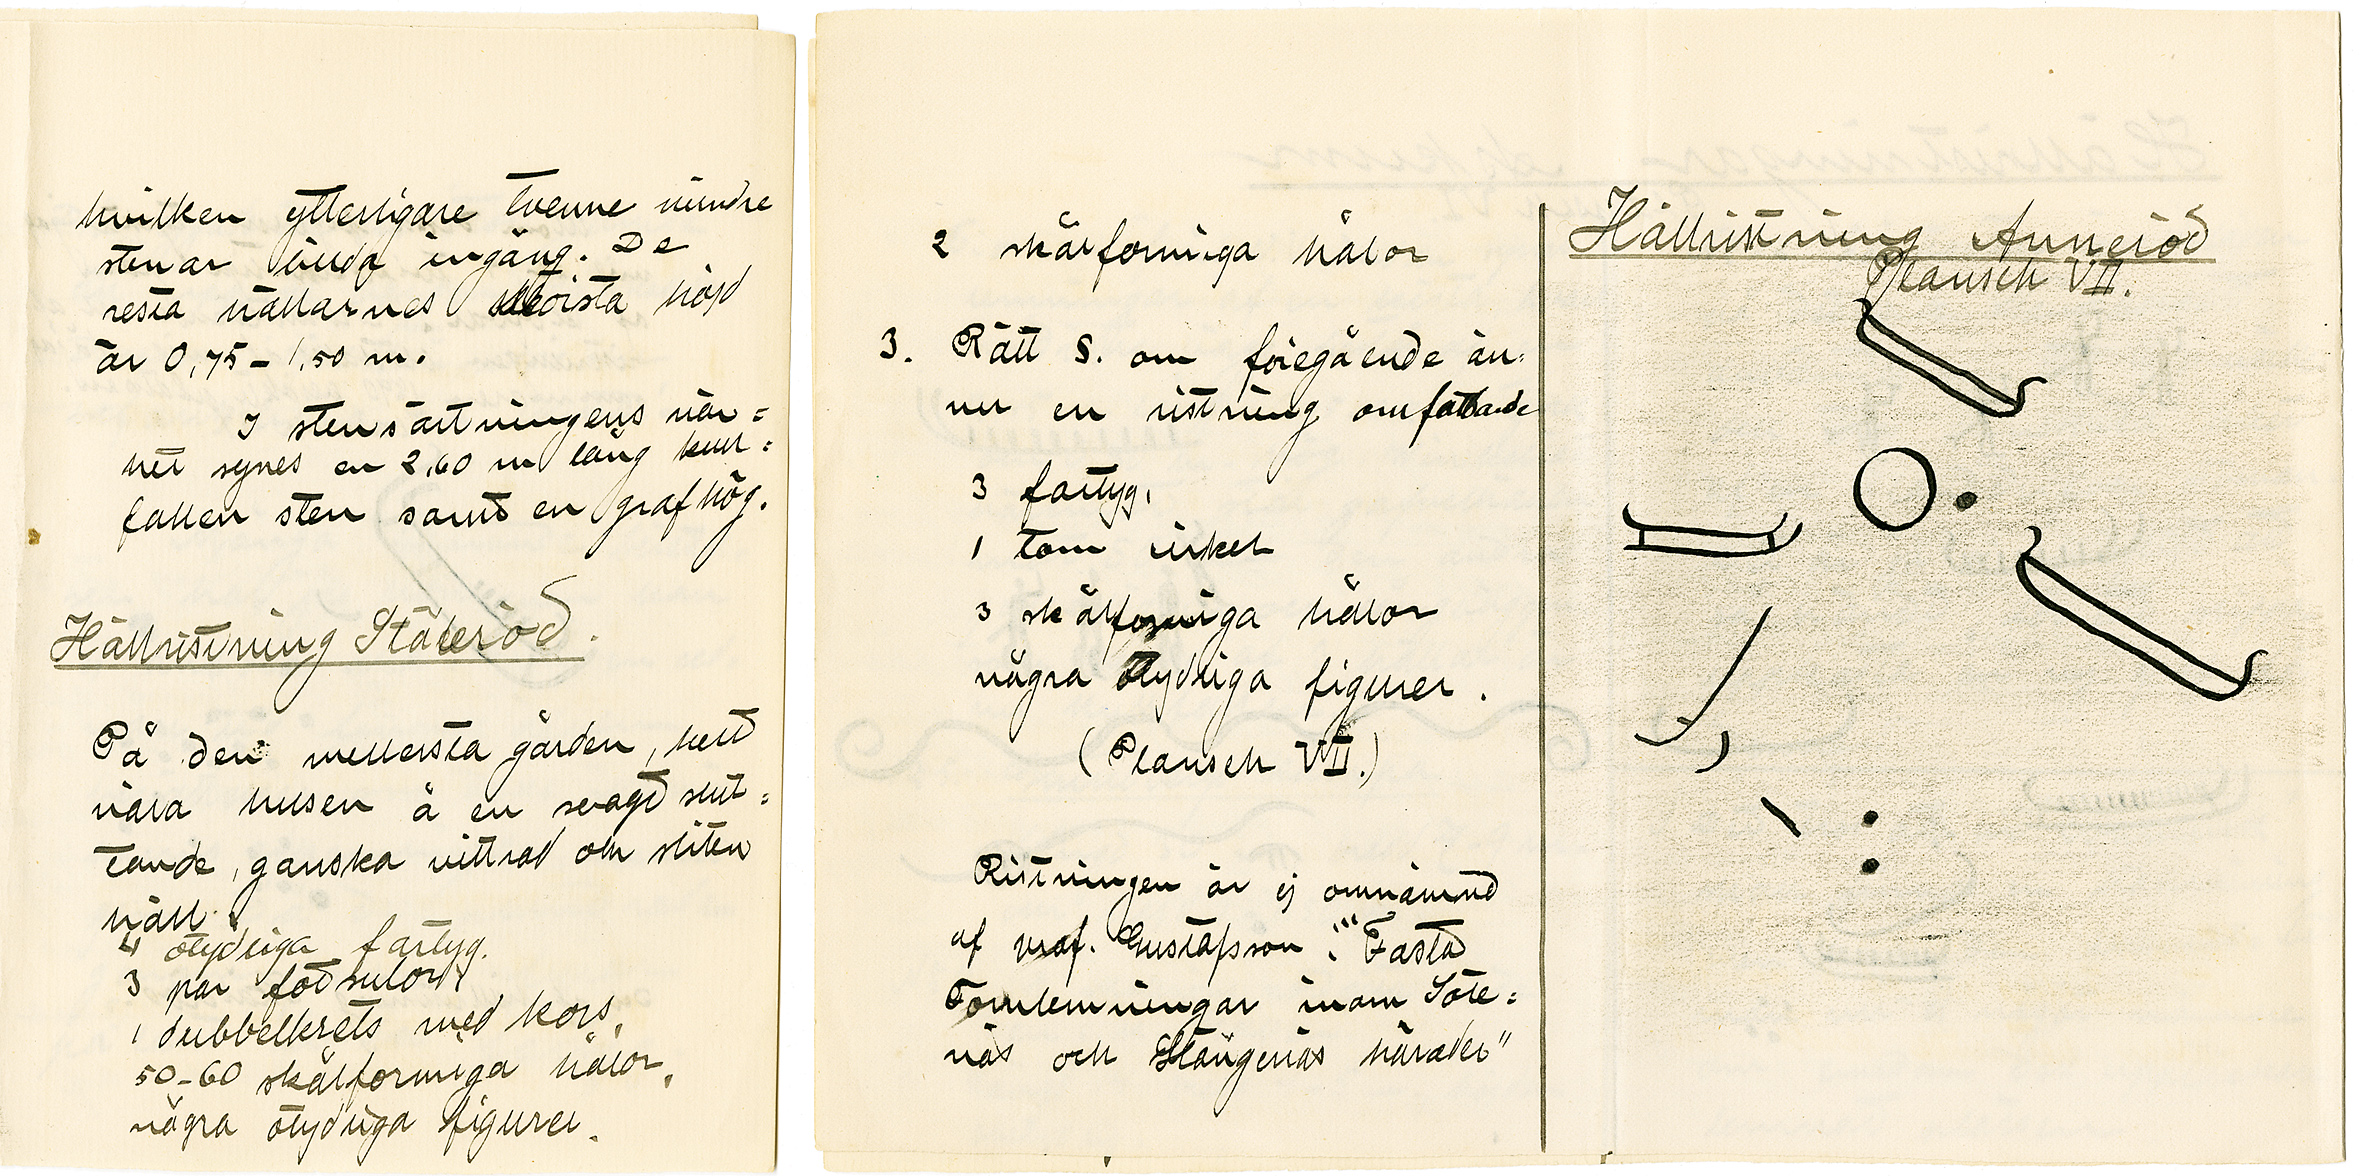 hvilken ytterligare tvenne mindre
stenar bilda ingång. De
resta hällarnes största höjd
är 0,75 – 1,50 m.
I stensättningens när=
het synes en 2,60 m lång kull=
fallen sten samt en grafhög.
Hällristning Ståleröd.
På den mellersta gården, helt
nära husen å en svagt slut=
tande, ganska vittrad och sliten
häll.
4 otydliga fartyg.
3 par fotsulor,
1 dubbelkrets med kors,
50–60 skålformiga hålor,
några otydliga figurer.
2 skålformiga hålor
3. Rätt S. om föregående än=
nu en ristning omfattande
3 fartyg,
1 tom cirkel
3 skålformiga hålor
några otydliga figurer.
(Plansch VII.)
Ristningen är ej omnämnd
af prof. Gustafsson i "Fasta
Fornlemningar inom Sote=
näs och Stångenäs härader"
Hällristning Anneröd
Plansch VII.